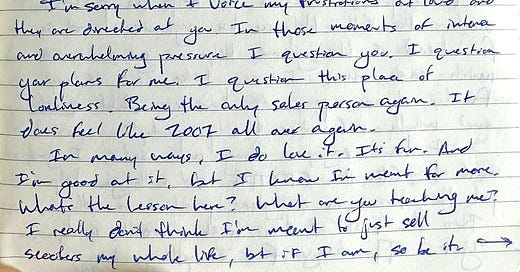 I'm sorry when I voice my frustrations out loud and
they are directed at you. In those moments of intense
and overwhelming pressure I question you. I question
your plans for me. I question this place of
lonliness. Being the only sales person again. It
does feel like 2007 all over again.
In many ways, I do love it. Its fun. And
I'm good at it, but I know I'm ment for more.
Whats the lesson here? What are you teaching me?
I really don't think I'm meant to just sell
my whole life, but if I am, so be it. →